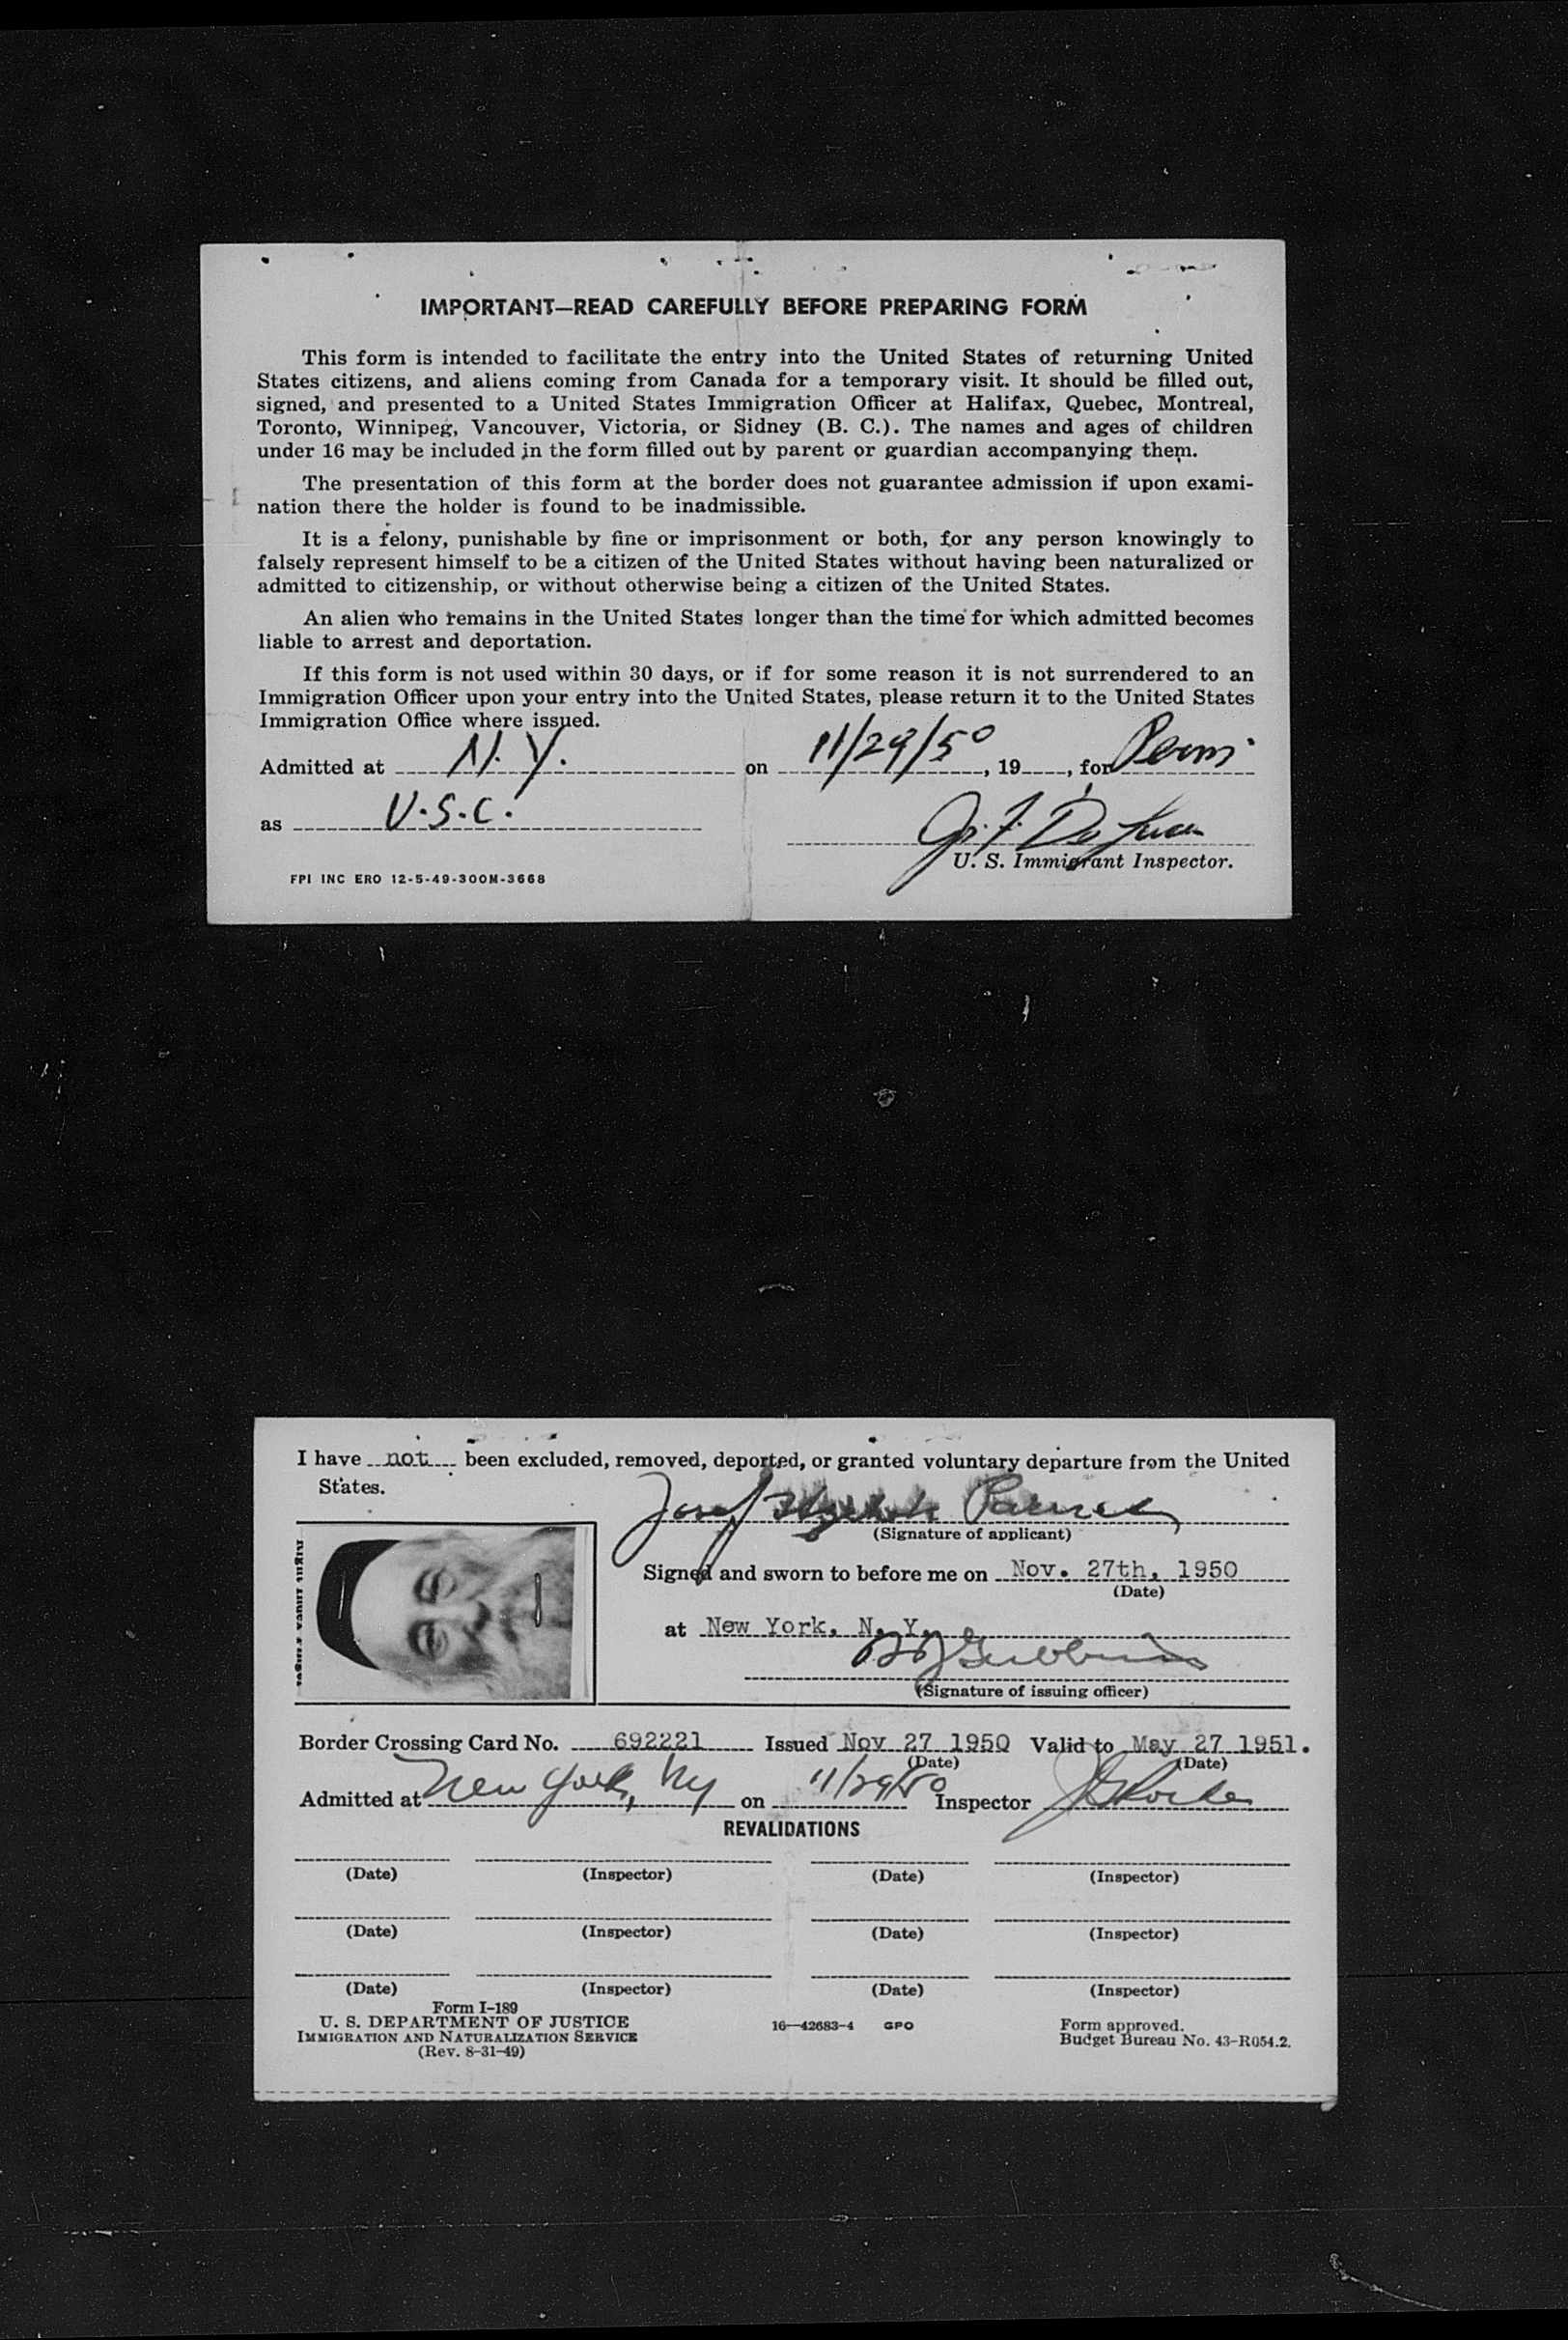 IMPORTANT—READ CAREFULLY BEFORE PREPARING FORM
This form is intended to facilitate the entry into the United States of returning United
States citizens, and aliens coming from Canada for a temporary visit. It should be filled out,
signed, and presented to a United States Immigration Officer at Halifax, Quebec, Montreal,
Toronto, Winnipeg, Vancouver, Victoria, or Sidney (B. C.). The names and ages of children
under 16 may be included in the form filled out by parent or guardian accompanying them.
The presentation of this form at the border does not guarantee admission if upon exami-
nation there the holder is found to be inadmissible.
It is a felony, punishable by fine or imprisonment or both, for any person knowingly to
falsely represent himself to be a citizen of the United States without having been naturalized or
admitted to citizenship, or without otherwise being a citizen of the United States.
An alien who remains in the United States longer than the time for which admitted becomes
liable to arrest and deportation.
If this form is not used within 30 days, or if for some reason it is not surrendered to an
Immigration Officer upon your entry into the United States, please return it to the United States
Immigration Office where issued.
Admitted at N. Y. on 11/29/50, 19, for Perm
as U.S.C.
U. S. Immigrant Inspector.
FPI INC ERO 12-5-49-300M-3668
I have not been excluded, removed, deported, or granted voluntary departure from the United
States.
Josef
(Signature of applicant)
Signed and sworn to before me on Nov. 27th, 1950
(Date)
at New York, N. Y.
(Signature of issuing officer)
Border Crossing Card No. 692221 Issued Nov 27 1950 Valid to May 27 1951.
(Date) (Date)
Admitted at New York, Ny on 11/29/50 Inspector
REVALIDATIONS
(Date) (Inspector) (Date) (Inspector)
(Date) (Inspector) (Date) (Inspector)
(Date) (Inspector) (Date) (Inspector)
Form I-189
U. S. DEPARTMENT OF JUSTICE
IMMIGRATION AND NATURALIZATION SERVICE
(Rev. 8-31-49)
16—42683-4 GPO
Form approved.
Budget Bureau No. 43-R054.2.